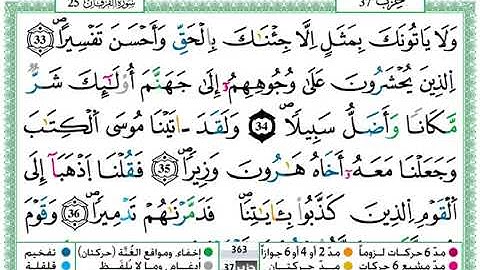 سُورَةُ الفُرْقَانِ 25
حِزْب 37
وَلَا يَاتُونَكَ بِمَثَلٍ اِلَّا جِئْنَٰكَ بِالْحَقِّ وَأَحْسَنَ تَفْسِيراًۖ 33
اِ۬لذِينَ يُحْشَرُونَ عَلَىٰ وُجُوهِهِمُۥٓ إِلَىٰ جَهَنَّمَ أُوْلَٰٓئِكَ شَرّٞ
مَّكَاناٗ وَأَضَلُّ سَبِيلاٗۖ 34 وَلَقَدَ اٰتَيْنَا مُوسَى اَ۬لْكِتَٰبَ
وَجَعَلْنَا مَعَهُۥٓ أَخَاهُ هَٰرُونَ وَزِيراٗۖ 35 فَقُلْنَا اَ۪ذْهَبَآ إِلَى
اَ۬لْقَوْمِ اِ۬لذِينَ كَذَّبُواْ بِـَٔايَٰتِنَاۖ فَدَمَّرْنَٰهُمْ تَدْمِيراٗۖ 36 وَقَوْمَ
مدّ 6 حركات لزوماً مدّ 2 أو 4 أو 6 جوازاً 363 إخفاء، ومواقع الغُنَّة (حركتان) تفخيم
مدّ مشبع 6 حركات مدّ حركتان 37 إدغام، وما لا يُلفَظ قلقلة